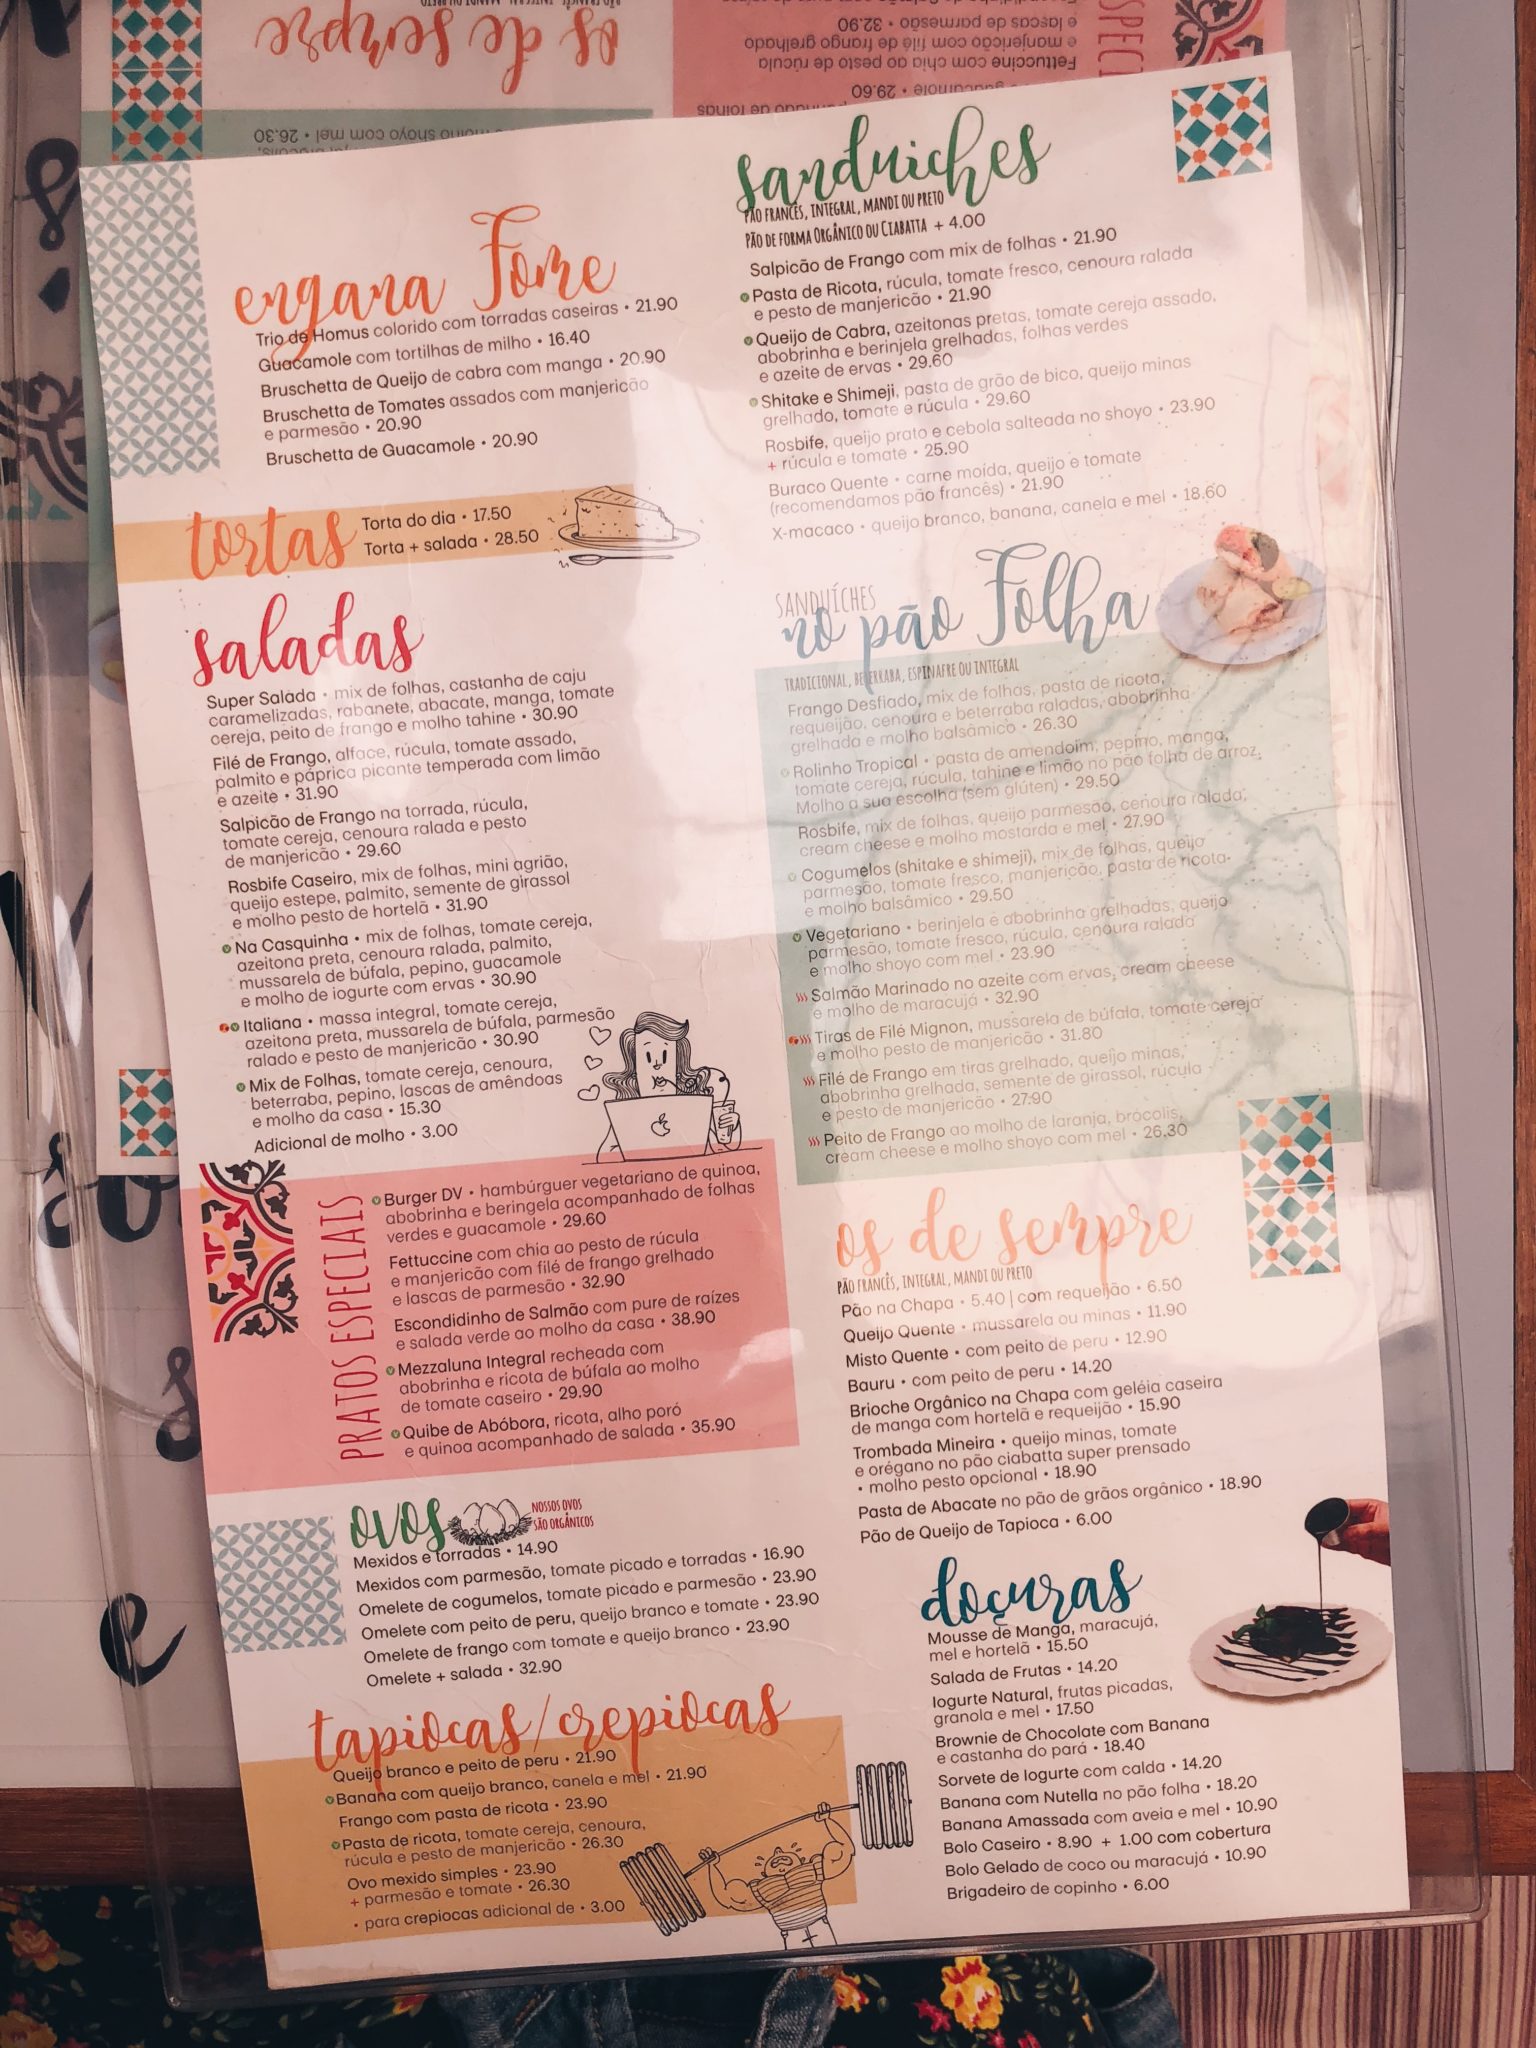 engana Fome
Trio de Homus colorido com torradas caseiras • 21.90
Guacamole com tortilhas de milho • 16.40
Bruschetta de Queijo de cabra com manga • 20.90
Bruschetta de Tomates assados com manjericão
e parmesão • 20.90
Bruschetta de Guacamole • 20.90
tortas
Torta do dia • 17.50
Torta + salada • 28.50
saladas
Super Salada • mix de folhas, castanha de caju
caramelizadas, rabanete, abacate, manga, tomate
cereja, peito de frango e molho tahine • 30.90
Filé de Frango, alface, rúcula, tomate assado,
palmito e páprica picante temperada com limão
e azeite • 31.90
Salpicão de Frango na torrada, rúcula,
tomate cereja, cenoura ralada e pesto
de manjericão • 29.60
Rosbife Caseiro, mix de folhas, mini agrião,
queijo estepe, palmito, semente de girassol
e molho pesto de hortelã • 31.90
Na Casquinha • mix de folhas, tomate cereja,
azeitona preta, cenoura ralada, palmito,
mussarela de búfala, pepino, guacamole
e molho de iogurte com ervas • 30.90
Italiana • massa integral, tomate cereja,
azeitona preta, mussarela de búfala, parmesão
ralado e pesto de manjericão • 30.90
Mix de Folhas, tomate cereja, cenoura,
beterraba, pepino, lascas de amêndoas
e molho da casa • 15.30
Adicional de molho • 3.00
PRATOS ESPECIAIS
Burger DV • hambúrguer vegetariano de quinoa,
abobrinha e beringela acompanhado de folhas
verdes e guacamole • 29.60
Fettuccine com chia ao pesto de rúcula
e manjericão com filé de frango grelhado
e lascas de parmesão • 32.90
Escondidinho de Salmão com pure de raízes
e salada verde ao molho da casa • 38.90
Mezzaluna Integral recheada com
abobrinha e ricota de búfala ao molho
de tomate caseiro • 29.90
Quibe de Abóbora, ricota, alho poró
e quinoa acompanhado de salada • 35.90
ovos
NOSSOS OVOS
SÃO ORGÂNICOS
Mexidos e torradas • 14.90
Mexidos com parmesão, tomate picado e torradas • 16.90
Omelete de cogumelos, tomate picado e parmesão • 23.90
Omelete com peito de peru, queijo branco e tomate • 23.90
Omelete de frango com tomate e queijo branco • 23.90
Omelete + salada • 32.90
tapiocas/crepiocas
Queijo branco e peito de peru • 21.90
Banana com queijo branco, canela e mel • 21.90
Frango com pasta de ricota • 23.90
Pasta de ricota, tomate cereja, cenoura,
rúcula e pesto de manjericão • 26.30
Ovo mexido simples • 23.90
+ parmesão e tomate • 26.30
• para crepiocas adicional de • 3.00
sanduiches
PÃO FRANCÊS, INTEGRAL, MANDI OU PRETO
PÃO DE FORMA ORGÂNICO OU CIABATTA + 4.00
Salpicão de Frango com mix de folhas • 21.90
Pasta de Ricota, rúcula, tomate fresco, cenoura ralada
e pesto de manjericão • 21.90
Queijo de Cabra, azeitonas pretas, tomate cereja assado,
abobrinha e berinjela grelhadas, folhas verdes
e azeite de ervas • 29.60
Shitake e Shimeji, pasta de grão de bico, queijo minas
grelhado, tomate e rúcula • 29.60
Rosbife, queijo prato e cebola salteada no shoyo • 23.90
+ rúcula e tomate • 25.90
Buraco Quente • carne moída, queijo e tomate
(recomendamos pão francês) • 21.90
X-macaco • queijo branco, banana, canela e mel • 18.60
SANDUÍCHES
no pão Folha
TRADICIONAL, BETERRABA, ESPINAFRE OU INTEGRAL
Frango Desfiado, mix de folhas, pasta de ricota,
requeijão, cenoura e beterraba raladas, abobrinha
grelhada e molho balsâmico • 26.30
Rolinho Tropical • pasta de amendoim, pepino, manga,
tomate cereja, rúcula, tahine e limão no pão folha de arroz,
Molho a sua escolha (sem glúten) • 29.50
Rosbife, mix de folhas, queijo parmesão, cenoura ralada,
cream cheese e molho mostarda e mel • 27.90
Cogumelos (shitake e shimeji), mix de folhas, queijo
parmesão, tomate fresco, manjericão, pasta de ricota
e molho balsâmico • 29.50
Vegetariano • berinjela e abobrinha grelhadas, queijo
parmesão, tomate fresco, rúcula, cenoura ralada
e molho shoyo com mel • 23.90
Salmão Marinado no azeite com ervas, cream cheese
e molho de maracujá • 32.90
Tiras de Filé Mignon, mussarela de búfala, tomate cereja
e molho pesto de manjericão • 31.80
Filé de Frango em tiras grelhado, queijo minas,
abobrinha grelhada, semente de girassol, rúcula
e pesto de manjericão • 27.90
Peito de Frango ao molho de laranja, brócolis,
cream cheese e molho shoyo com mel • 26.30
os de sempre
PÃO FRANCÊS, INTEGRAL, MANDI OU PRETO
Pão na Chapa • 5.40 | com requeijão • 6.50
Queijo Quente • mussarela ou minas • 11.90
Misto Quente • com peito de peru • 12.90
Bauru • com peito de peru • 14.20
Brioche Orgânico na Chapa com geléia caseira
de manga com hortelã e requeijão • 15.90
Trombada Mineira • queijo minas, tomate
e orégano no pão ciabatta super prensado
• molho pesto opcional • 18.90
Pasta de Abacate no pão de grãos orgânico • 18.90
Pão de Queijo de Tapioca • 6.00
doçuras
Mousse de Manga, maracujá,
mel e hortelã • 15.50
Salada de Frutas • 14.20
Iogurte Natural, frutas picadas,
granola e mel • 17.50
Brownie de Chocolate com Banana
e castanha do pará • 18.40
Sorvete de Iogurte com calda • 14.20
Banana com Nutella no pão folha • 18.20
Banana Amassada com aveia e mel • 10.90
Bolo Caseiro • 8.90 + 1.00 com cobertura
Bolo Gelado de coco ou maracujá • 10.90
Brigadeiro de copinho • 6.00
os de sempre
molho shoyo com mel • 26.30
Fettuccine com chia ao pesto de rúcula
e manjericão com filé de frango grelhado
e lascas de parmesão • 32.90
guacamole • 29.60